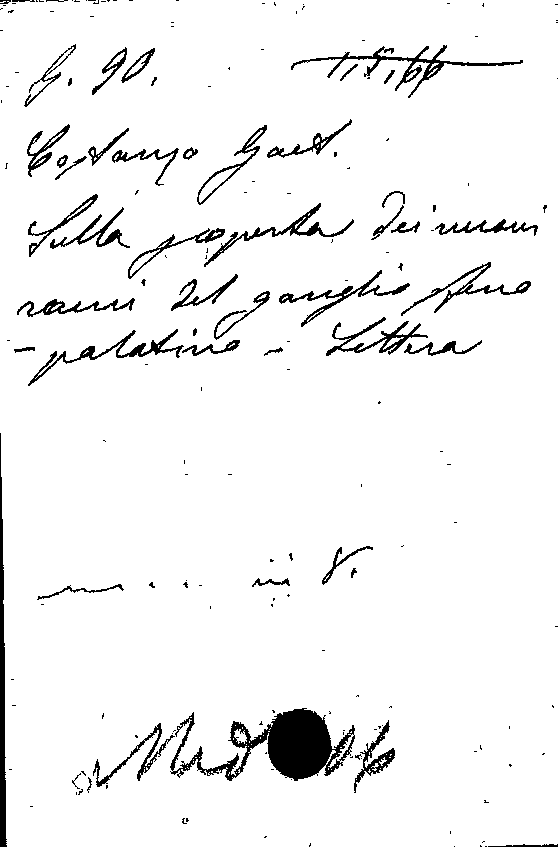 G. 90. 1,5,66
Costanzo Gaet.
Sulla scoperta dei nuovi
rami del ganglio sfeno
-palatino - Lettera
in 8.